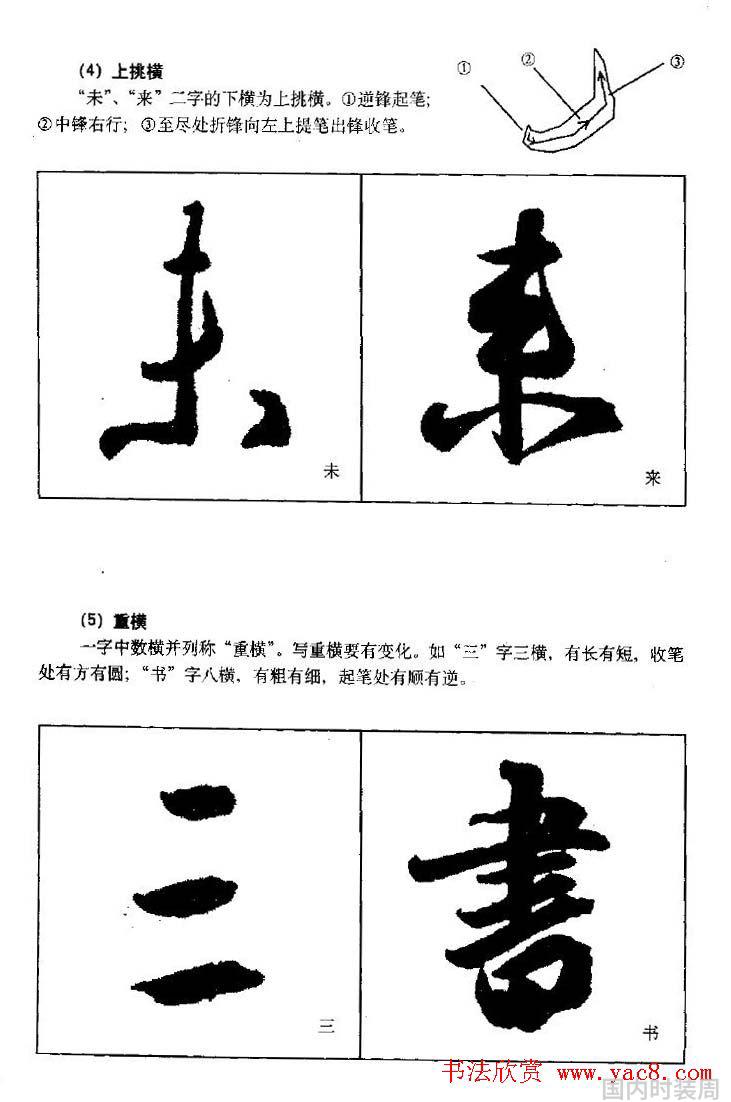 (4) 上挑横
“未”、“来”二字的下横为上挑横。①逆锋起笔;
②中锋右行; ③至尽处折锋向左上提笔出锋收笔。
① ② ③
未 来
未 来
(5) 重横
一字中数横并列称“重横”。写重横要有变化。如“三”字三横, 有长有短, 收笔
处有方有圆; “书”字八横, 有粗有细, 起笔处有顺有逆。
三 書
三 书
书法欣赏 www.yac8.com
国内时装周